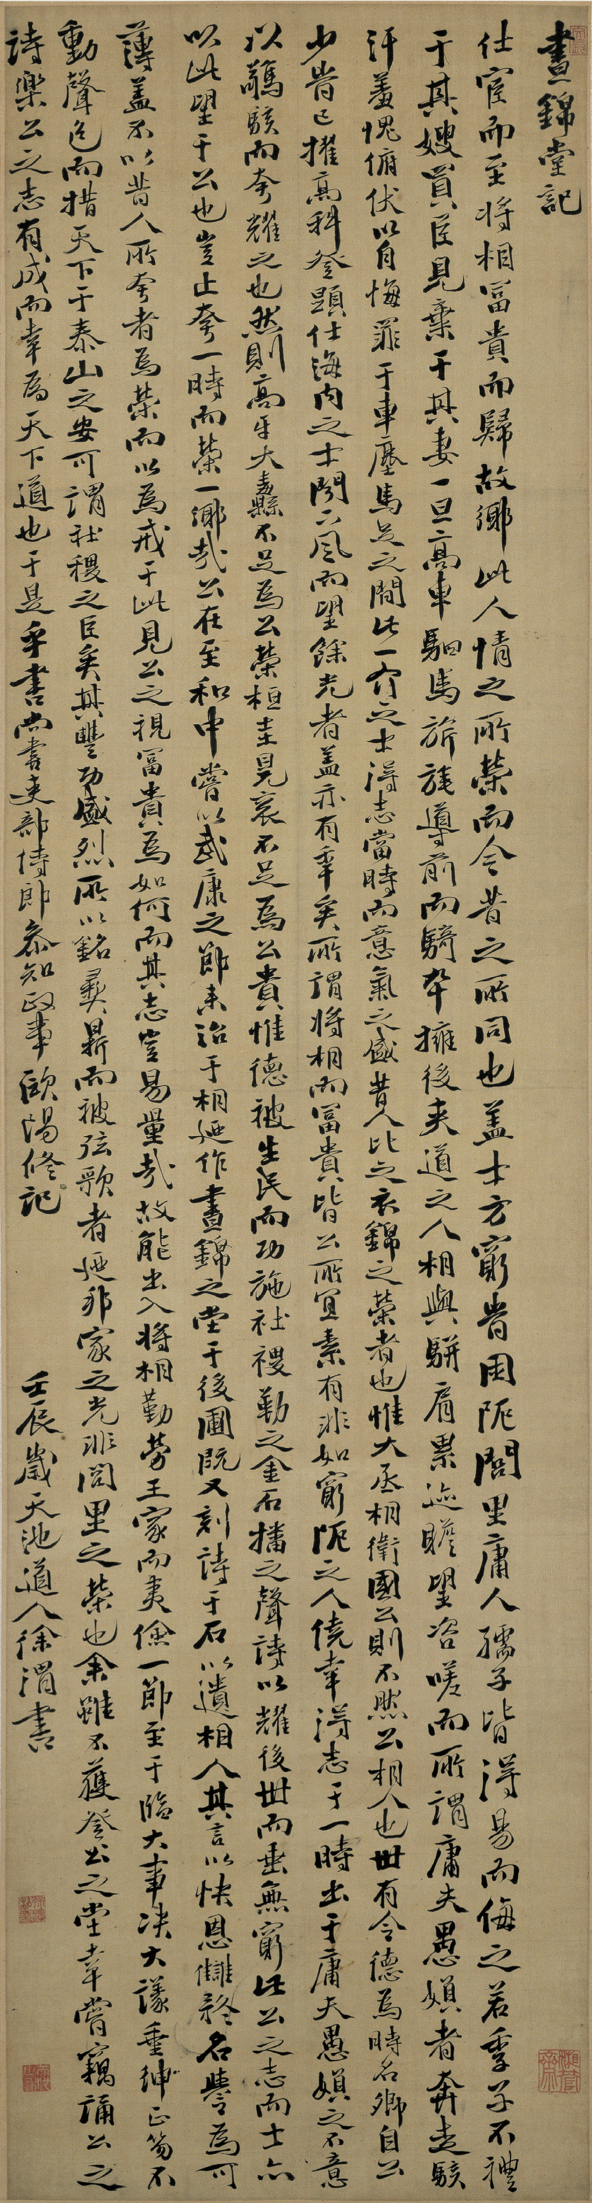 晝錦堂記
仕宦而至将相冨貴而歸故鄉此人情之所榮而今昔之所同也蓋士方窮昔困阨閭里庸人孺子皆得易而侮之若季子不禮
于其嫂買臣見棄于其妻一旦高車駟馬旂旄導前而騎卒擁後夾道之人相與駢肩累迹瞻望咨嗟而所謂庸夫愚婦者奔走駭
汗羞愧俯伏以自悔罪于車塵馬足之間此一介之士得志當時而意氣之盛昔人比之衣錦之榮者也惟大丞相衛國公則不然公相人也世有令德為時名卿自公
少昔已擢高科登顯仕海内之士聞下風而望餘光者蓋亦有年矣所謂将相而冨貴皆公所宜素有非如窮阨之人僥幸得志于一時出于庸夫愚婦之不意
以驕駭而夸耀之也然則高牙大纛不足為公榮桓圭冕衮不足為公貴惟德被生民而功施社稷勒之金石播之聲詩以耀後世而垂無窮此公之志而士亦
以此望于公也豈止夸一時而榮一鄉哉公在至和中嘗以武康之節来治于相廼作晝錦之堂于後圃既又刻詩于石以遺相人其言以快恩讎矜名譽為可
薄蓋不以昔人所夸者為榮而以為戒于此見公之視冨貴為如何而其志豈易量哉故能出入将相勤勞王家而夷儉一節至于臨大事决大議垂紳正笏不
動聲色而措天下于泰山之安可謂社稷之臣矣其豐功盛烈所以銘彝鼎而被弦歌者廼邦家之光非閭里之榮也余雖不獲登公之堂幸嘗竊誦公之
詩樂公之志有成而幸為天下道也于是乎書尚書吏部侍郎叅知政事歐陽修記
壬辰歲天池道人徐渭書